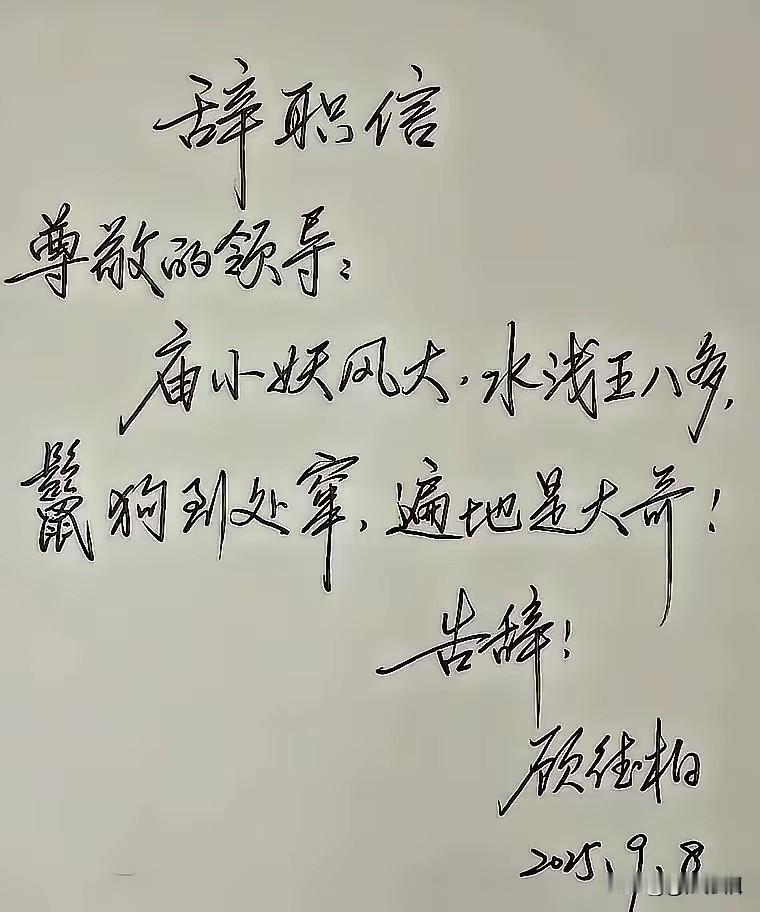 辞职信
尊敬的领导：
庙小妖风大.水浅王八多,
鬣狗到处窜,遍地是大哥!
告辞!
顾德柏
2025.9.8